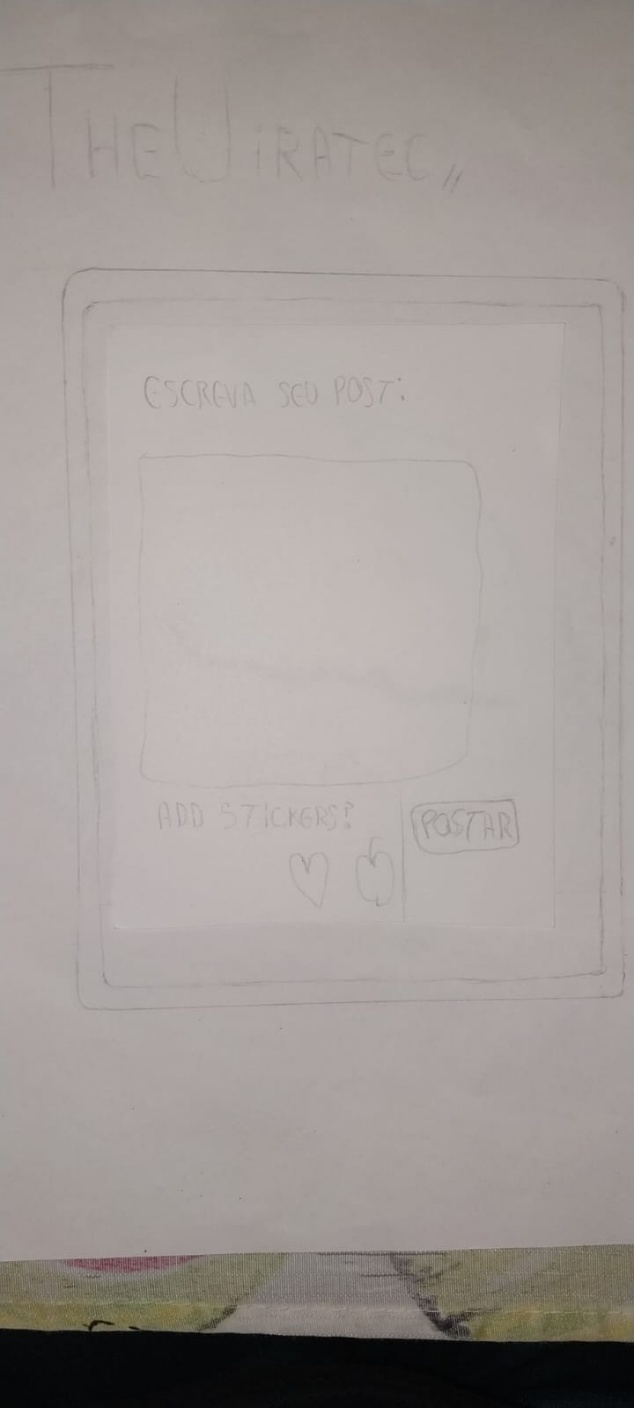 THEUIRATEC,,
ESCREVA SEU POST:
ADD STICKERS?
POSTAR